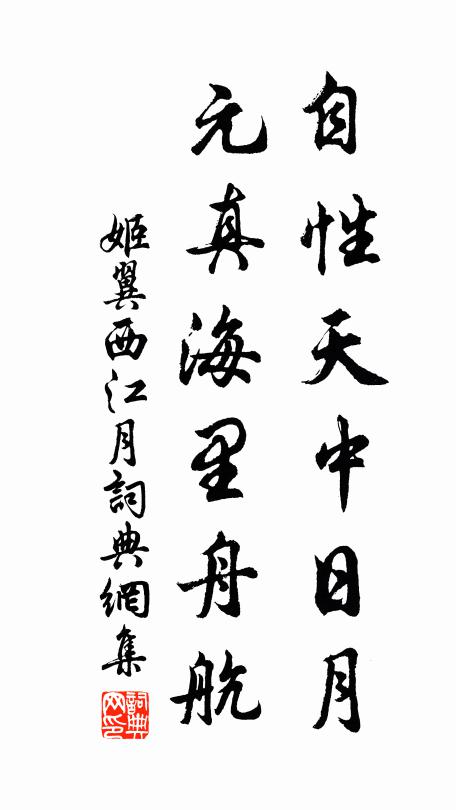 自性天中日月
元真海里舟航
姬翼西江月詞典網集
詞典网印